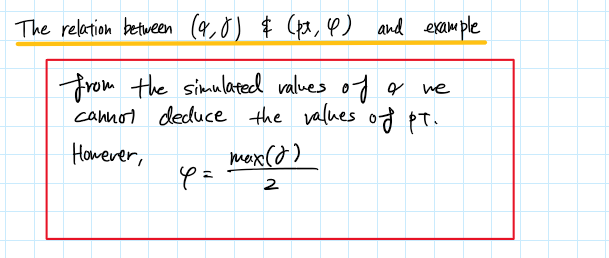 The relation between (q, γ) & (pt, φ) and example
from the simulated values of q we
cannot deduce the values of pT.
However,
φ = max(γ) / 2